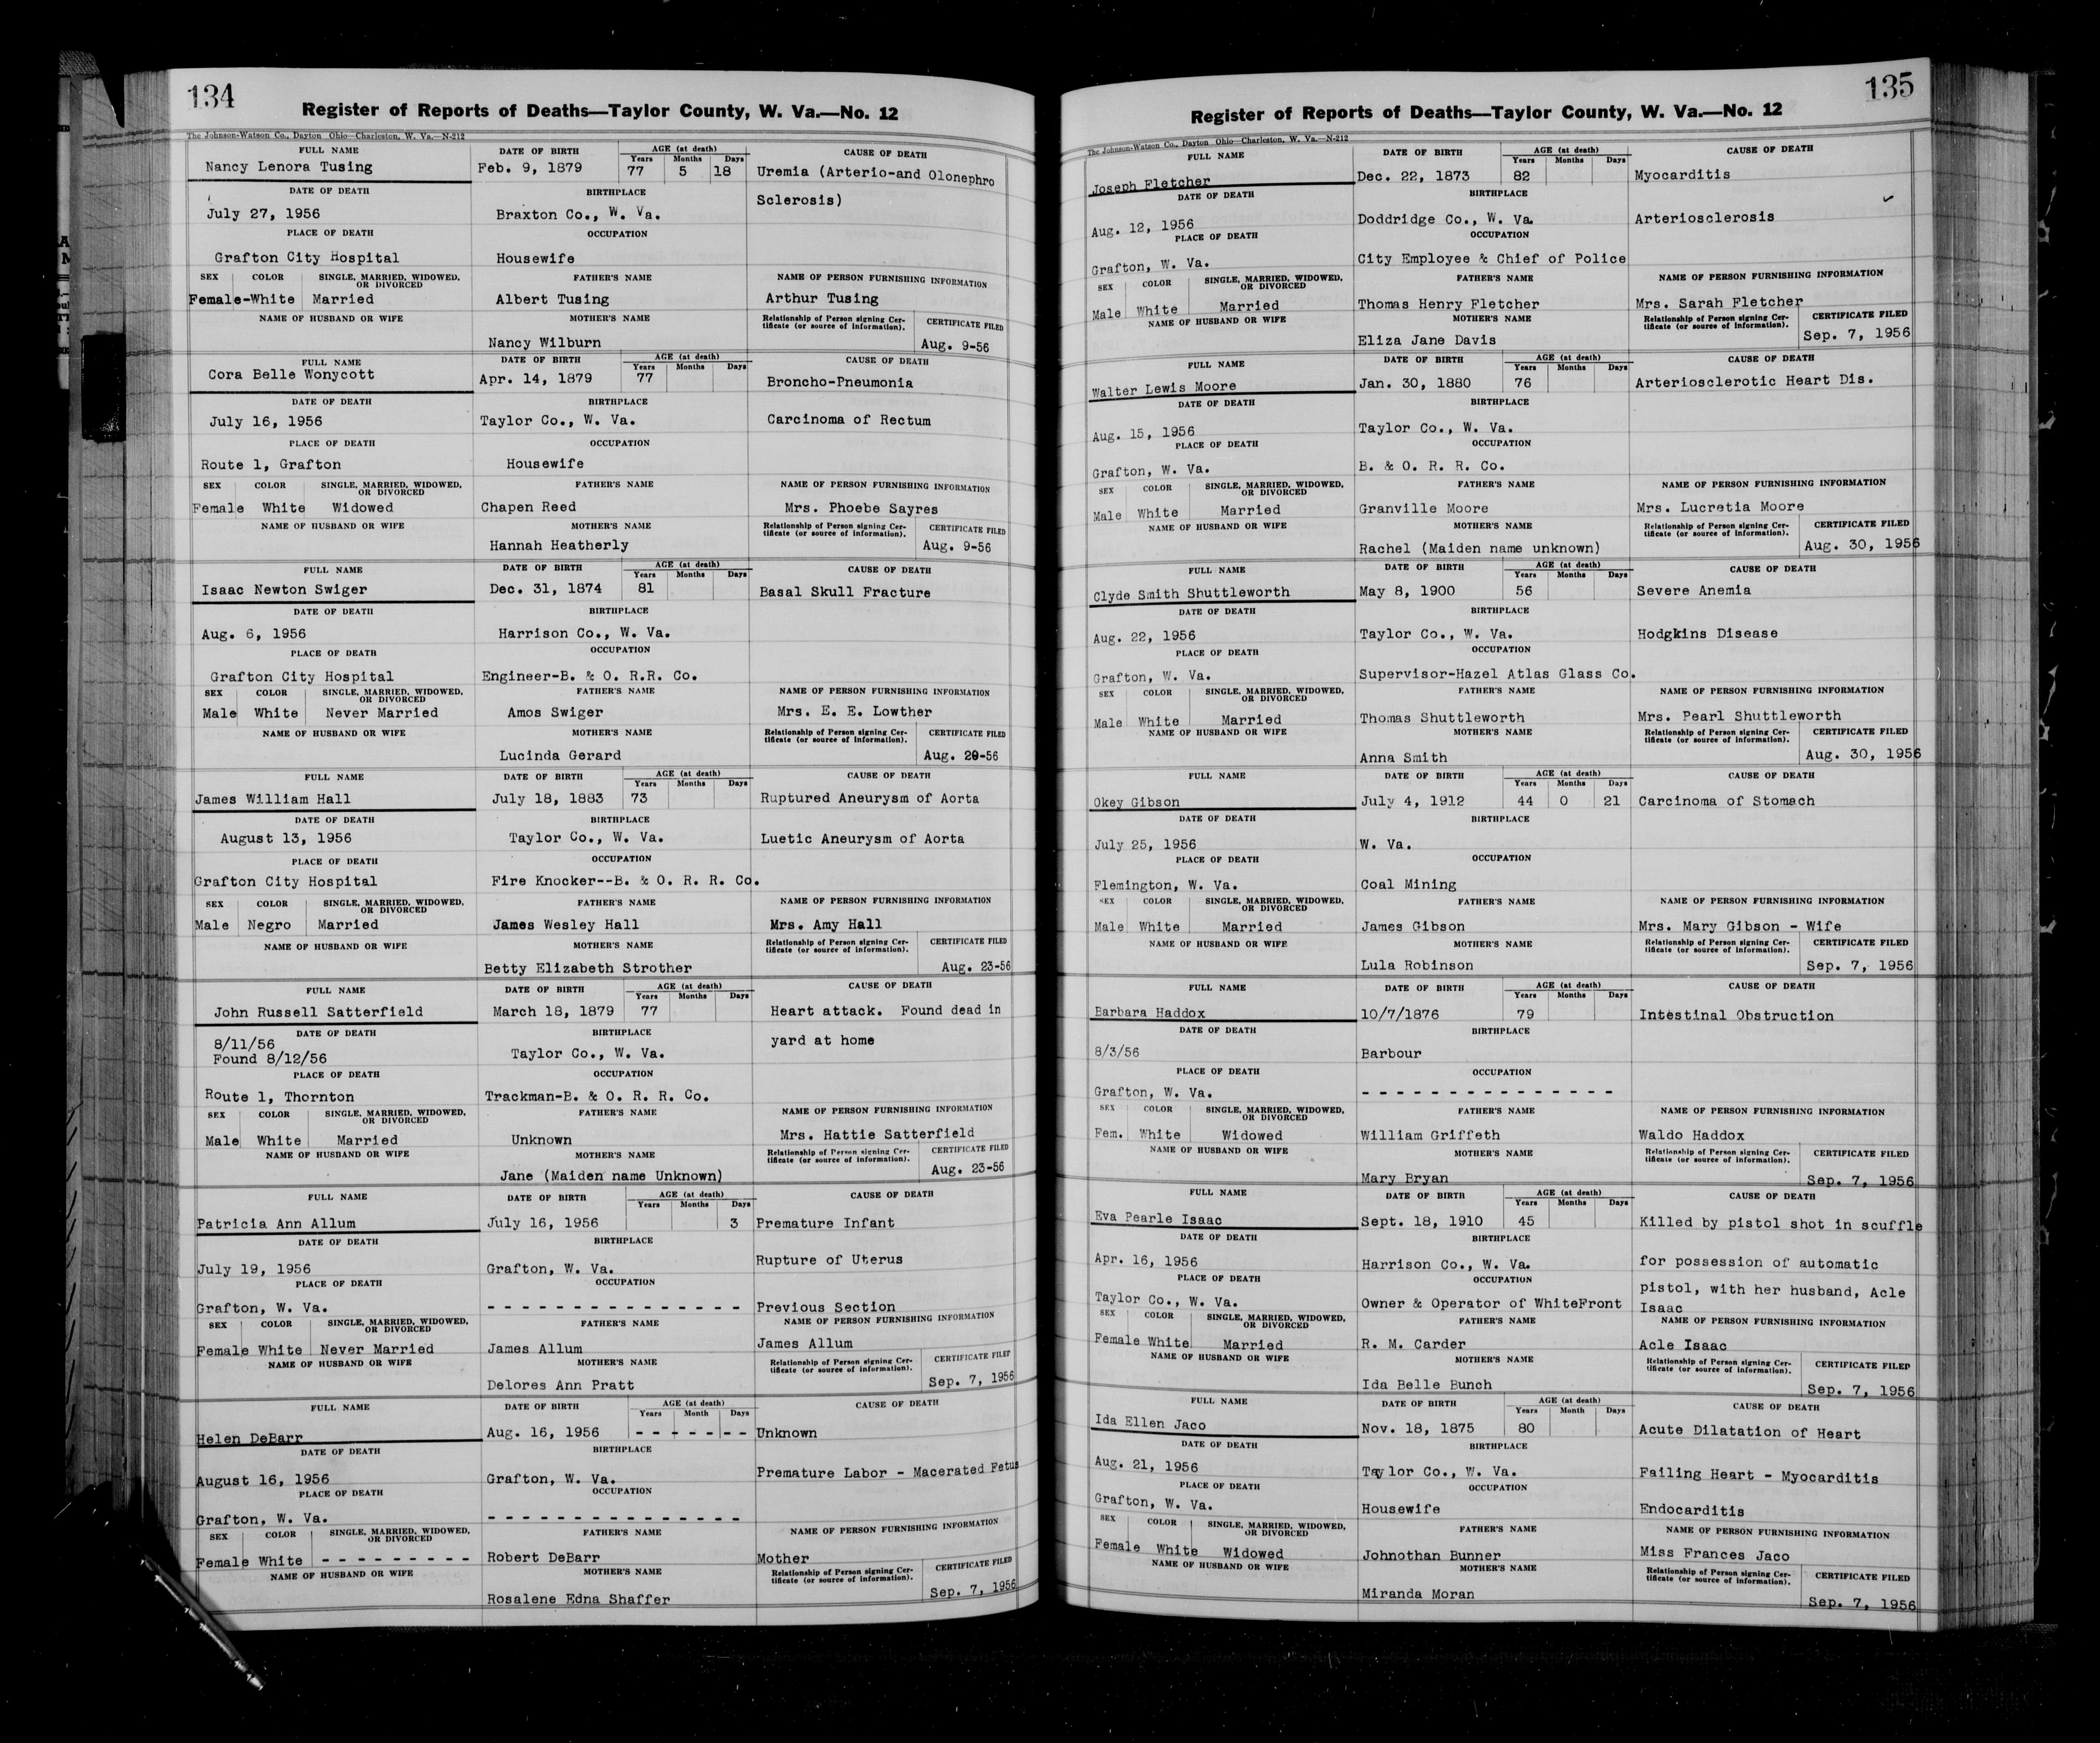 134
Register of Reports of Deaths—Taylor County, W. Va.—No. 12
The Johnson-Watson Co., Dayton Ohio—Charleston, W. Va.—N-212
FULL NAME DATE OF BIRTH AGE (at death) CAUSE OF DEATH
Years Months Days
Nancy Lenora Tusing Feb. 9, 1879 77 5 18 Uremia (Arterio-and Olonephro
DATE OF DEATH BIRTHPLACE
Sclerosis)
July 27, 1956 Braxton Co., W. Va.
PLACE OF DEATH OCCUPATION
Grafton City Hospital Housewife
SEX COLOR SINGLE, MARRIED, WIDOWED, OR DIVORCED FATHER'S NAME NAME OF PERSON FURNISHING INFORMATION
Female-White Married Albert Tusing Arthur Tusing
NAME OF HUSBAND OR WIFE MOTHER'S NAME Relationship of Person signing Certificate (or source of information). CERTIFICATE FILED
Nancy Wilburn Aug. 9-56
FULL NAME DATE OF BIRTH AGE (at death) CAUSE OF DEATH
Years Months Days
Cora Belle Wonycott Apr. 14, 1879 77 Broncho-Pneumonia
DATE OF DEATH BIRTHPLACE
July 16, 1956 Taylor Co., W. Va. Carcinoma of Rectum
PLACE OF DEATH OCCUPATION
Route 1, Grafton Housewife
SEX COLOR SINGLE, MARRIED, WIDOWED, OR DIVORCED FATHER'S NAME NAME OF PERSON FURNISHING INFORMATION
Female White Widowed Chapen Reed Mrs. Phoebe Sayres
NAME OF HUSBAND OR WIFE MOTHER'S NAME Relationship of Person signing Certificate (or source of information). CERTIFICATE FILED
Hannah Heatherly Aug. 9-56
FULL NAME DATE OF BIRTH AGE (at death) CAUSE OF DEATH
Years Months Days
Isaac Newton Swiger Dec. 31, 1874 81 Basal Skull Fracture
DATE OF DEATH BIRTHPLACE
Aug. 6, 1956 Harrison Co., W. Va.
PLACE OF DEATH OCCUPATION
Grafton City Hospital Engineer-B. & O. R.R. Co.
SEX COLOR SINGLE, MARRIED, WIDOWED, OR DIVORCED FATHER'S NAME NAME OF PERSON FURNISHING INFORMATION
Male White Never Married Amos Swiger Mrs. E. E. Lowther
NAME OF HUSBAND OR WIFE MOTHER'S NAME Relationship of Person signing Certificate (or source of information). CERTIFICATE FILED
Lucinda Gerard Aug. 20-56
FULL NAME DATE OF BIRTH AGE (at death) CAUSE OF DEATH
Years Months Days
James William Hall July 18, 1883 73 Ruptured Aneurysm of Aorta
DATE OF DEATH BIRTHPLACE
August 13, 1956 Taylor Co., W. Va. Luetic Aneurysm of Aorta
PLACE OF DEATH OCCUPATION
Grafton City Hospital Fire Knocker--B. & O. R. R. Co.
SEX COLOR SINGLE, MARRIED, WIDOWED, OR DIVORCED FATHER'S NAME NAME OF PERSON FURNISHING INFORMATION
Male Negro Married James Wesley Hall Mrs. Amy Hall
NAME OF HUSBAND OR WIFE MOTHER'S NAME Relationship of Person signing Certificate (or source of information). CERTIFICATE FILED
Betty Elizabeth Strother Aug. 23-56
FULL NAME DATE OF BIRTH AGE (at death) CAUSE OF DEATH
Years Months Days
John Russell Satterfield March 18, 1879 77 Heart attack. Found dead in
DATE OF DEATH BIRTHPLACE yard at home
8/11/56
Found 8/12/56 Taylor Co., W. Va.
PLACE OF DEATH OCCUPATION
Route 1, Thornton Trackman-B. & O. R. R. Co.
SEX COLOR SINGLE, MARRIED, WIDOWED, OR DIVORCED FATHER'S NAME NAME OF PERSON FURNISHING INFORMATION
Male White Married Unknown Mrs. Hattie Satterfield
NAME OF HUSBAND OR WIFE MOTHER'S NAME Relationship of Person signing Certificate (or source of information). CERTIFICATE FILED
Jane (Maiden name Unknown) Aug. 23-56
FULL NAME DATE OF BIRTH AGE (at death) CAUSE OF DEATH
Years Months Days
Patricia Ann Allum July 16, 1956 3 Premature Infant
DATE OF DEATH BIRTHPLACE
Rupture of Uterus
July 19, 1956 Grafton, W. Va.
PLACE OF DEATH OCCUPATION
Grafton, W. Va. - - - - - - - - - - - - - - Previous Section
SEX COLOR SINGLE, MARRIED, WIDOWED, OR DIVORCED FATHER'S NAME NAME OF PERSON FURNISHING INFORMATION
Female White Never Married James Allum James Allum
NAME OF HUSBAND OR WIFE MOTHER'S NAME Relationship of Person signing Certificate (or source of information). CERTIFICATE FILED
Delores Ann Pratt Sep. 7, 1956
FULL NAME DATE OF BIRTH AGE (at death) CAUSE OF DEATH
Years Month Days
Helen DeBarr Aug. 16, 1956 - - - - - - - Unknown
DATE OF DEATH BIRTHPLACE
August 16, 1956 Grafton, W. Va. Premature Labor - Macerated Fetus
PLACE OF DEATH OCCUPATION
Grafton, W. Va. - - - - - - - - - - - - - -
SEX COLOR SINGLE, MARRIED, WIDOWED, OR DIVORCED FATHER'S NAME NAME OF PERSON FURNISHING INFORMATION
Female White - - - - - - - - - Robert DeBarr Mother
NAME OF HUSBAND OR WIFE MOTHER'S NAME Relationship of Person signing Certificate (or source of information). CERTIFICATE FILED
Rosalene Edna Shaffer Sep. 7, 1956
135
Register of Reports of Deaths—Taylor County, W. Va.—No. 12
The Johnson-Watson Co., Dayton Ohio—Charleston, W. Va.—N-212
FULL NAME DATE OF BIRTH AGE (at death) CAUSE OF DEATH
Years Months Days
Joseph Fletcher Dec. 22, 1873 82 Myocarditis
DATE OF DEATH BIRTHPLACE
Aug. 12, 1956 Doddridge Co., W. Va. Arteriosclerosis
PLACE OF DEATH OCCUPATION
Grafton, W. Va. City Employee & Chief of Police
SEX COLOR SINGLE, MARRIED, WIDOWED, OR DIVORCED FATHER'S NAME NAME OF PERSON FURNISHING INFORMATION
Male White Married Thomas Henry Fletcher Mrs. Sarah Fletcher
NAME OF HUSBAND OR WIFE MOTHER'S NAME Relationship of Person signing Certificate (or source of information). CERTIFICATE FILED
Eliza Jane Davis Sep. 7, 1956
FULL NAME DATE OF BIRTH AGE (at death) CAUSE OF DEATH
Years Months Days
Walter Lewis Moore Jan. 30, 1880 76 Arteriosclerotic Heart Dis.
DATE OF DEATH BIRTHPLACE
Aug. 15, 1956 Taylor Co., W. Va.
PLACE OF DEATH OCCUPATION
Grafton, W. Va. B. & O. R. R. Co.
SEX COLOR SINGLE, MARRIED, WIDOWED, OR DIVORCED FATHER'S NAME NAME OF PERSON FURNISHING INFORMATION
Male White Married Granville Moore Mrs. Lucretia Moore
NAME OF HUSBAND OR WIFE MOTHER'S NAME Relationship of Person signing Certificate (or source of information). CERTIFICATE FILED
Rachel (Maiden name unknown) Aug. 30, 1956
FULL NAME DATE OF BIRTH AGE (at death) CAUSE OF DEATH
Years Months Days
Clyde Smith Shuttleworth May 8, 1900 56 Severe Anemia
DATE OF DEATH BIRTHPLACE
Aug. 22, 1956 Taylor Co., W. Va. Hodgkins Disease
PLACE OF DEATH OCCUPATION
Grafton, W. Va. Supervisor-Hazel Atlas Glass Co.
SEX COLOR SINGLE, MARRIED, WIDOWED, OR DIVORCED FATHER'S NAME NAME OF PERSON FURNISHING INFORMATION
Male White Married Thomas Shuttleworth Mrs. Pearl Shuttleworth
NAME OF HUSBAND OR WIFE MOTHER'S NAME Relationship of Person signing Certificate (or source of information). CERTIFICATE FILED
Anna Smith Aug. 30, 1956
FULL NAME DATE OF BIRTH AGE (at death) CAUSE OF DEATH
Years Months Days
Okey Gibson July 4, 1912 44 0 21 Carcinoma of Stomach
DATE OF DEATH BIRTHPLACE
July 25, 1956 W. Va.
PLACE OF DEATH OCCUPATION
Flemington, W. Va. Coal Mining
SEX COLOR SINGLE, MARRIED, WIDOWED, OR DIVORCED FATHER'S NAME NAME OF PERSON FURNISHING INFORMATION
Male White Married James Gibson Mrs. Mary Gibson - Wife
NAME OF HUSBAND OR WIFE MOTHER'S NAME Relationship of Person signing Certificate (or source of information). CERTIFICATE FILED
Lula Robinson Sep. 7, 1956
FULL NAME DATE OF BIRTH AGE (at death) CAUSE OF DEATH
Years Months Days
Barbara Haddox 10/7/1876 79 Intestinal Obstruction
DATE OF DEATH BIRTHPLACE
8/3/56 Barbour
PLACE OF DEATH OCCUPATION
Grafton, W. Va. - - - - - - - - - - - - - - -
SEX COLOR SINGLE, MARRIED, WIDOWED, OR DIVORCED FATHER'S NAME NAME OF PERSON FURNISHING INFORMATION
Fem. White Widowed William Griffeth Waldo Haddox
NAME OF HUSBAND OR WIFE MOTHER'S NAME Relationship of Person signing Certificate (or source of information). CERTIFICATE FILED
Mary Bryan Sep. 7, 1956
FULL NAME DATE OF BIRTH AGE (at death) CAUSE OF DEATH
Years Months Days
Eva Pearle Isaac Sept. 18, 1910 45 Killed by pistol shot in scuffle
DATE OF DEATH BIRTHPLACE
Apr. 16, 1956 Harrison Co., W. Va. for possession of automatic
PLACE OF DEATH OCCUPATION pistol, with her husband, Acle
Taylor Co., W. Va. Owner & Operator of WhiteFront Isaac
SEX COLOR SINGLE, MARRIED, WIDOWED, OR DIVORCED FATHER'S NAME NAME OF PERSON FURNISHING INFORMATION
Female White Married R. M. Carder Acle Isaac
NAME OF HUSBAND OR WIFE MOTHER'S NAME Relationship of Person signing Certificate (or source of information). CERTIFICATE FILED
Ida Belle Bunch Sep. 7, 1956
FULL NAME DATE OF BIRTH AGE (at death) CAUSE OF DEATH
Years Month Days
Ida Ellen Jaco Nov. 18, 1875 80 Acute Dilatation of Heart
DATE OF DEATH BIRTHPLACE
Aug. 21, 1956 Taylor Co., W. Va. Failing Heart - Myocarditis
PLACE OF DEATH OCCUPATION
Grafton, W. Va. Housewife Endocarditis
SEX COLOR SINGLE, MARRIED, WIDOWED, OR DIVORCED FATHER'S NAME NAME OF PERSON FURNISHING INFORMATION
Female White Widowed Johnothan Bunner Miss Frances Jaco
NAME OF HUSBAND OR WIFE MOTHER'S NAME Relationship of Person signing Certificate (or source of information). CERTIFICATE FILED
Miranda Moran Sep. 7, 1956